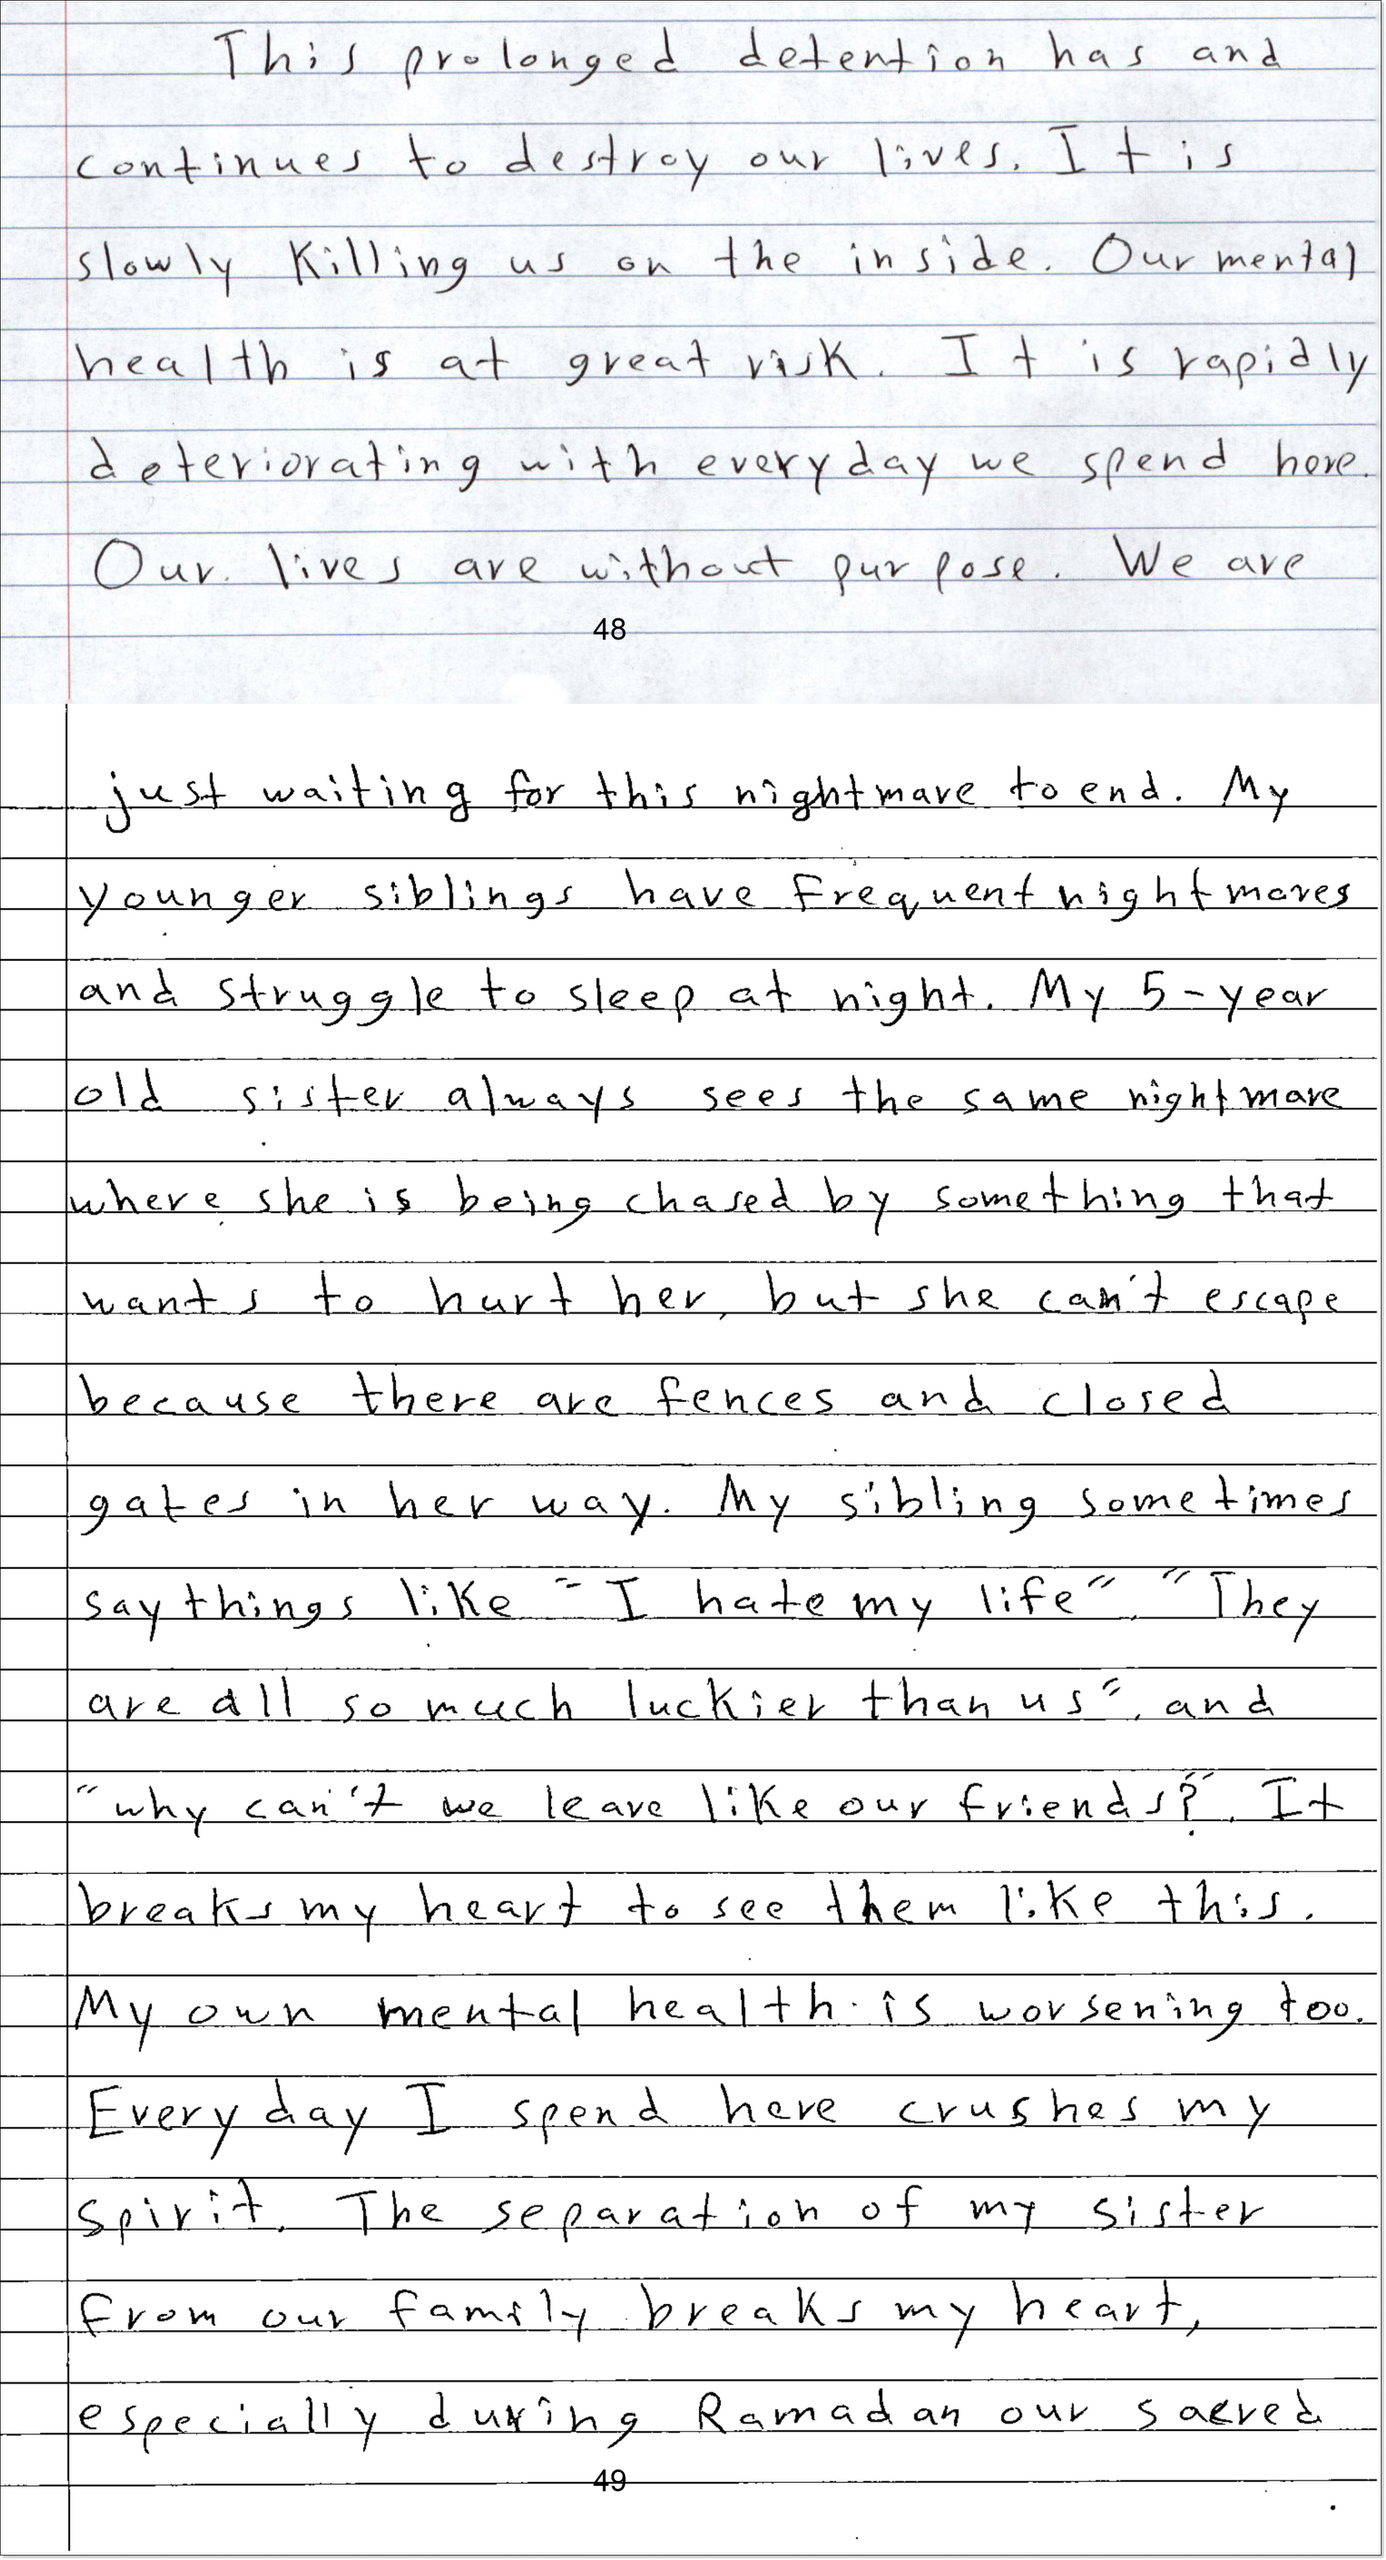 This prolonged detention has and
continues to destroy our lives. It is
slowly killing us on the inside. Our mental
health is at great risk. It is rapidly
deteriorating with everyday we spend here.
Our lives are without purpose. We are
48
just waiting for this nightmare to end. My
younger siblings have frequent nightmares
and struggle to sleep at night. My 5-year
old sister always sees the same nightmare
where she is being chased by something that
wants to hurt her, but she can't escape
because there are fences and closed
gates in her way. My sibling sometimes
say things like "I hate my life". "They
are all so much luckier than us", and
"why can't we leave like our friends?". It
breaks my heart to see them like this.
My own mental health is worsening too.
Every day I spend here crushes my
spirit. The separation of my sister
from our family breaks my heart,
especially during Ramadan our sacred
49